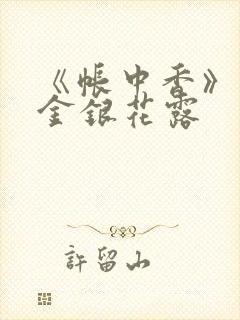 《帐中香》
金银花露
許留山